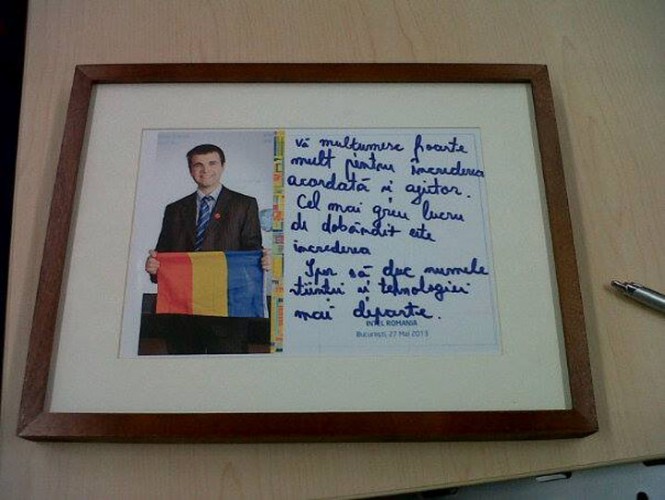 Vă mulțumesc foarte
mult pentru încrederea
acordată și ajutor.
Cel mai greu lucru
de dobândit este
încrederea
Sper să duc numele
științei și tehnologiei
mai departe.
INTEL ROMANIA
București, 27 Mai 2013